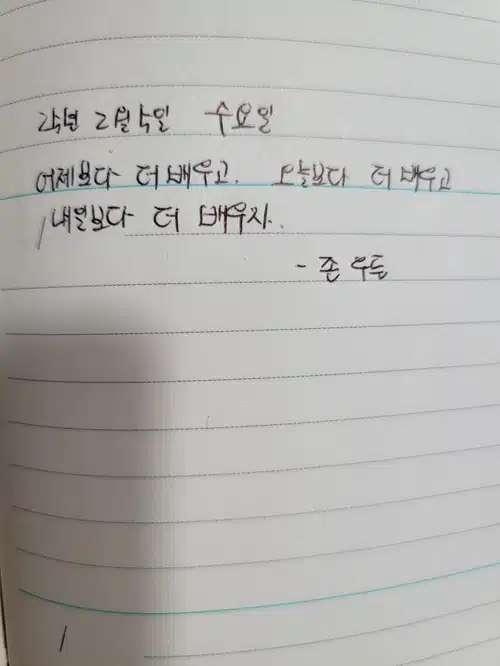 25년 2월 5일 수요일
어제보다 더 배우고. 오늘보다 더 배우고
내일보다 더 배우자.
- 존 우든